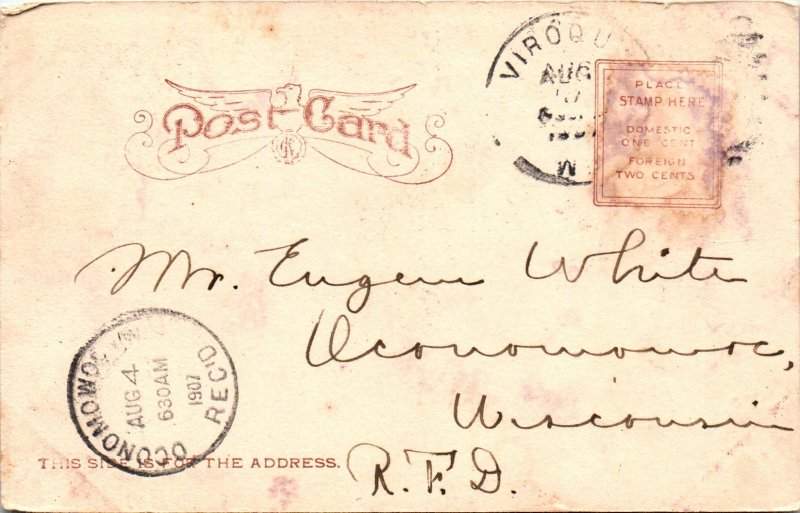 Post Card
VIROQU
AUG
W
PLACE
STAMP HERE
DOMESTIC
ONE CENT
FOREIGN
TWO CENTS
Mr. Eugene White
Oconomowoc,
Wisconsin
R.F.D.
OCONOMOWOC
AUG 4
630AM
1907
REC'D
THIS SIDE IS FOR THE ADDRESS.